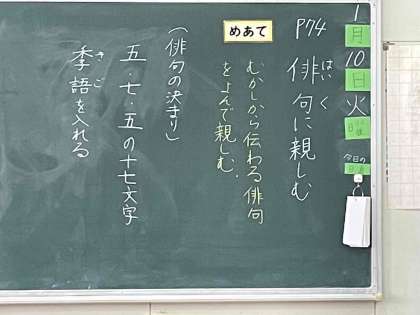 1月10日火曜
今日の日直
P74 俳句に親しむ
はいく
めあて
むかしから伝わる俳句
をよんで親しむ。
(俳句の決まり)
五・七・五の十七文字
季語を入れる
きご